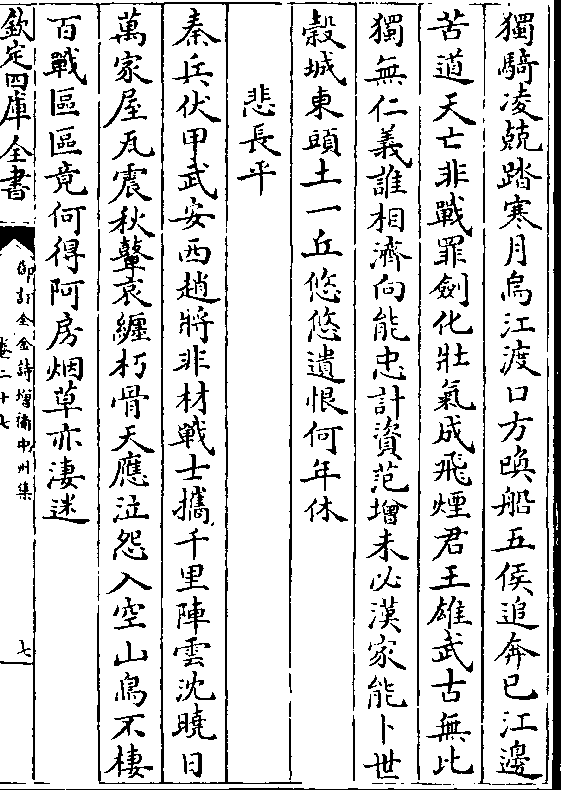 獨騎凌兢踏寒月烏江渡口方喚船五侯追奔已江邊
苦道天亡非戰罪劍化壯氣成飛煙君王雄武古無比
獨無仁義誰相濟向能忠計資范增未必漢家能卜世
穀城東頭土一丘悠悠遺恨何年休
悲長平
秦兵伏甲武安西趙將非材戰士攜千里陣雲沈曉日
萬家屋瓦震秋鼙哀纏朽骨天應泣怨入空山鳥不棲
百戰區區竟何得阿房烟草亦淒迷
欽定四庫全書
御訂全金詩增補中州集
卷二十七
七